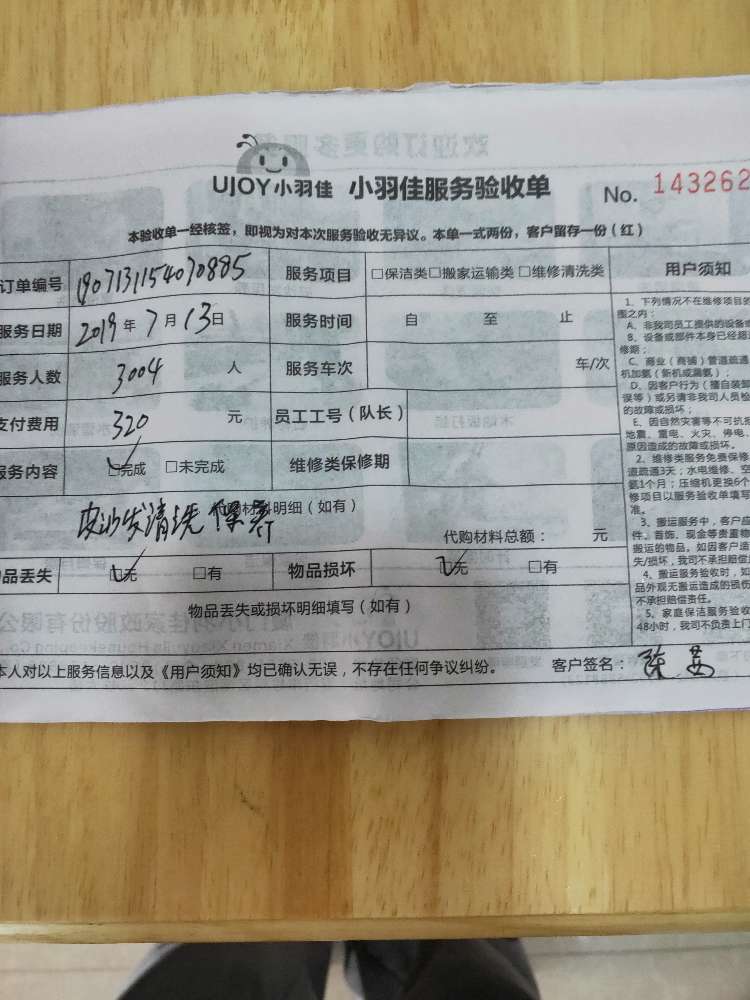 UJOY小羽佳 小羽佳服务验收单 No. 143262
本验收单一经核签，即视为对本次服务验收无异议。本单一式两份，客户留存一份（红）
订单编号 190713115407088​5 服务项目 □保洁类□搬家运输类□维修清洗类 用户须知
服务日期 2019年7月13日 服务时间 自 至 止
服务人数 3004 人 服务车次 车/次
支付费用 320 元 员工工号（队长）
服务内容 ☑完成 □未完成 维修类保修期
代购材料明细（如有）
皮沙发清洗 保养
代购材料总额： 元
物品丢失 ☑无 □有 物品损坏 ☑无 □有
物品丢失或损坏明细填写（如有）
本人对以上服务信息以及《用户须知》均已确认无误，不存在任何争议纠纷。 客户签名：陈
1、下列情况不在维修项目的
围之内：
A、非我司员工提供的设备或
B、设备或部件本身已经超
修期；
C、商业（商铺）管道疏通
机加氨（新机或漏氨）；
D、因客户行为（擅自装卸
误等）或另请非我司人员检
的故障或损坏；
E、因自然灾害等不可抗拒
地震、雷电、火灾、停电、
原因造成的故障或损坏。
2、维修类服务免费保修
道疏通3天；水电维修、空
氨1个月；压缩机更换6个
修项目以服务验收单填写
准。
3、搬运服务中，客户应
件、首饰、现金等贵重物
搬运的物品，如因客户造
失/损坏，我司不承担赔偿
4、搬运服务验收时，如
品外观无搬运造成的损伤
不承担赔偿责任。
5、家庭保洁服务验收
48小时，我司不负责上门